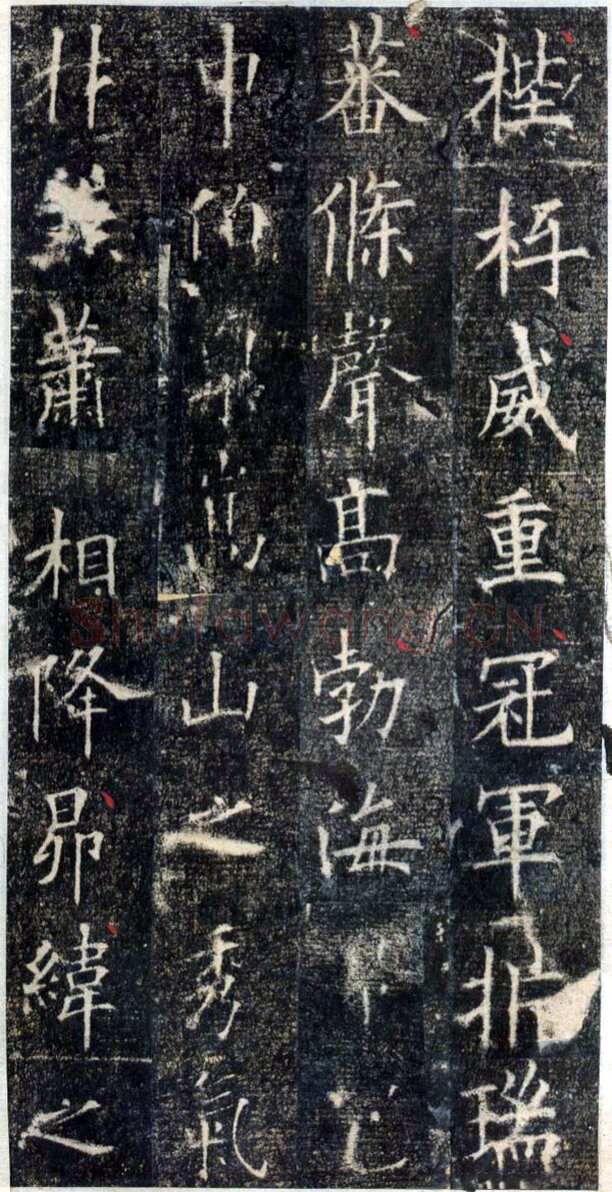 梐枑威重冠軍析瑞
蕃條聲高勃海
申伯嵩山之秀氣
材蕭相降昴緯之
Shufawang.CN